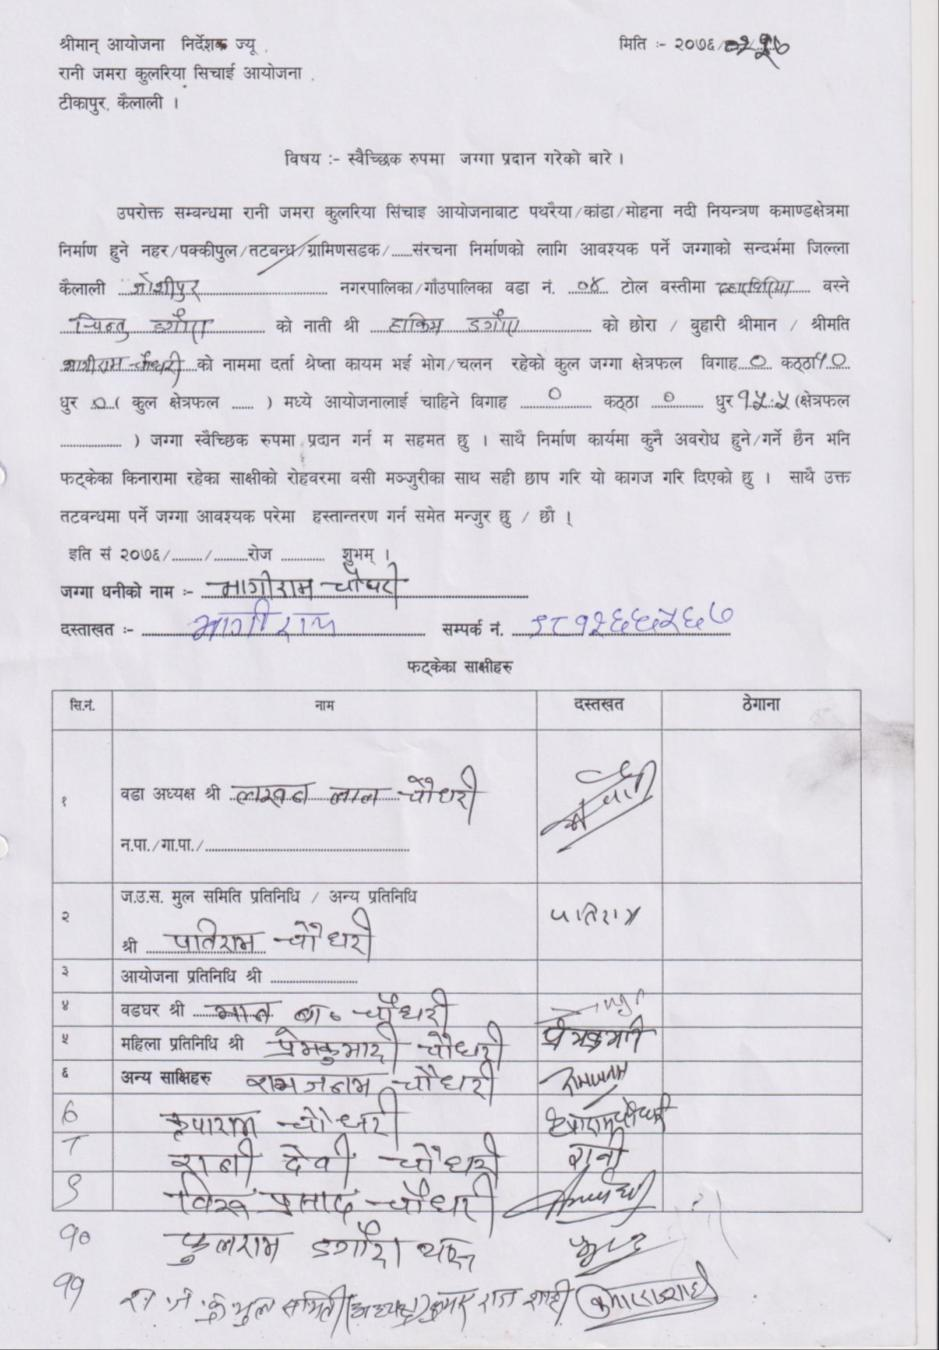 श्रीमान् आयोजना निर्देशक ज्यू , मिति :- २०७६/
रानी जमरा कुलरिया सिंचाई आयोजना ,
टीकापुर, कैलाली ।
विषय :- स्वैच्छिक रुपमा जग्गा प्रदान गरेको बारे ।
उपरोक्त सम्बन्धमा रानी जमरा कुलरिया सिंचाइ आयोजनाबाट पथरैया/कांडा/मोहना नदी नियन्त्रण कमाण्डक्षेत्रमा
निर्माण हुने नहर/पक्कीपुल/तटबन्ध/ग्रामिणसडक/......संरचना निर्माणको लागि आवश्यक पर्ने जग्गाको सन्दर्भमा जिल्ला
कैलाली जोशीपुर नगरपालिका/गाँउपालिका वडा नं. ०४ टोल वस्तीमा वस्ने
चिन्तु डगौरा को नाती श्री हाकिम डगौरा को छोरा / बुहारी श्रीमान / श्रीमति
भागीराम चौधरी को नाममा दर्ता श्रेष्ता कायम भई भोग/चलन रहेको कुल जग्गा क्षेत्रफल विगाह ० कठ्ठा १०
धुर ० ( कुल क्षेत्रफल ...... ) मध्ये आयोजनालाई चाहिने विगाह ० कठ्ठा ० धुर १५.५ (क्षेत्रफल
.................. ) जग्गा स्वैच्छिक रुपमा प्रदान गर्न म सहमत छु । साथै निर्माण कार्यमा कुनै अवरोध हुने/गर्ने छैन भनि
फट्केका किनारामा रहेका साक्षीको रोहवरमा वसी मञ्जुरीका साथ सही छाप गरि यो कागज गरि दिएको छु । साथै उक्त
तटबन्धमा पर्ने जग्गा आवश्यक परेमा हस्तान्तरण गर्न समेत मन्जुर छु / छौ ।
इति सं २०७६/........./.........रोज ............ शुभम् ।
जग्गा धनीको नाम :- भागीराम चौधरी
दस्ताखत :- भागीराम सम्पर्क नं. ९८१२६६५६७
फट्केका साक्षीहरु
सि.नं. नाम दस्तखत ठेगाना
१ वडा अध्यक्ष श्री लखन लाल चौधरी
न.पा./गा.पा./..................
२ ज.उ.स. मुल समिति प्रतिनिधि / अन्य प्रतिनिधि
श्री पातिराम चौधरी पातिराम
३ आयोजना प्रतिनिधि श्री ..................
४ वडघर श्री मान ब० चौधरी
५ महिला प्रतिनिधि श्री प्रेमकुमारी चौधरी प्रेमकुमारी
६ अन्य साक्षिहरु रामजनाम चौधरी
कृपाराम चौधरी कृपाराम चौधरी
रानी देवी चौधरी रानी
९ चौधरी
१० फुलराम डगौरा थारु
११ रा ज कु मुल समिती (अध्यक्ष) कुमार राज शाही